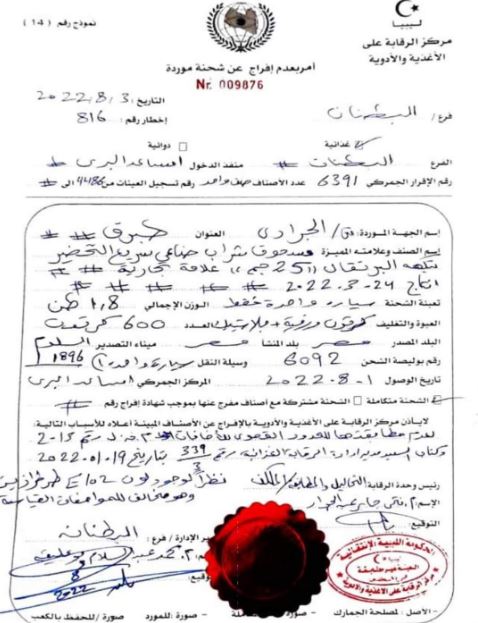 نموذج رقم ( 14 )
ليبيا
مركز الرقابة على
الأغذية والأدوية
أمر بعدم إفراج عن شحنة موردة
Nr. 009876
التاريخ : 2022/8/3
إخطار رقم : 816
فرع / البطنان
غذائية
دوائية
الفرع البطنان # منفذ الدخول امساعد البري #
رقم الإقرار الجمركي 6391 عدد الأصناف صنف واحد رقم تسجيل العينات من 4486 الى #
إسم الجهة الموردة: العنوان طبرق # #
إسم الصنف وعلامته المميزة مسحوق شراب صناعي سريع التحضير
بنكهة البرتقال (25 جم) علامة تجارية # #
انتاج 24-3-2022 # # # #
تعبئة الشحنة سيارة واحدة فقط الوزن الإجمالي 1,8 طن
العبوة والتغليف كرتون ورقية + بلاستيك العدد 600 كرتونة
البلد المصدر مصر بلد المنشأ مصر ميناء التصدير السلوم
رقم بوليصة الشحن 6092 وسيلة النقل سيارة واحدة (1896)
تاريخ الوصول 1-8-2022 المركز الجمركي امساعد البري
الشحنة متكاملة الشحنة مشتركة مع اصناف مفرج عنها بموجب شهادة إفراج رقم #
لا يأذن مركز الرقابة على الأغذية والأدوية بالإفراج عن الأصناف المبينة اعلاه للأسباب التالية:
لعدم مطابقتها للحدود القصوى للإضافات رقم 2-13
وكتاب السيد مدير إدارة الرقابة الغذائية رقم 339 بتاريخ 19-01-2022
رئيس وحدة الرقابة نظراً لوجود لون E102
الإسم: وهو مخالف للمواصفات القياسية
التوقيع:
مدير الإدارة / فرع : البطنان
التوقيع:
2022
الحكومة الليبية الإنتقالية
مركز الرقابة على الاغذية والادوية
- الاصل : لمصلحة الجمارك - صورة : للمورد - صورة / للحفظ بالكعب